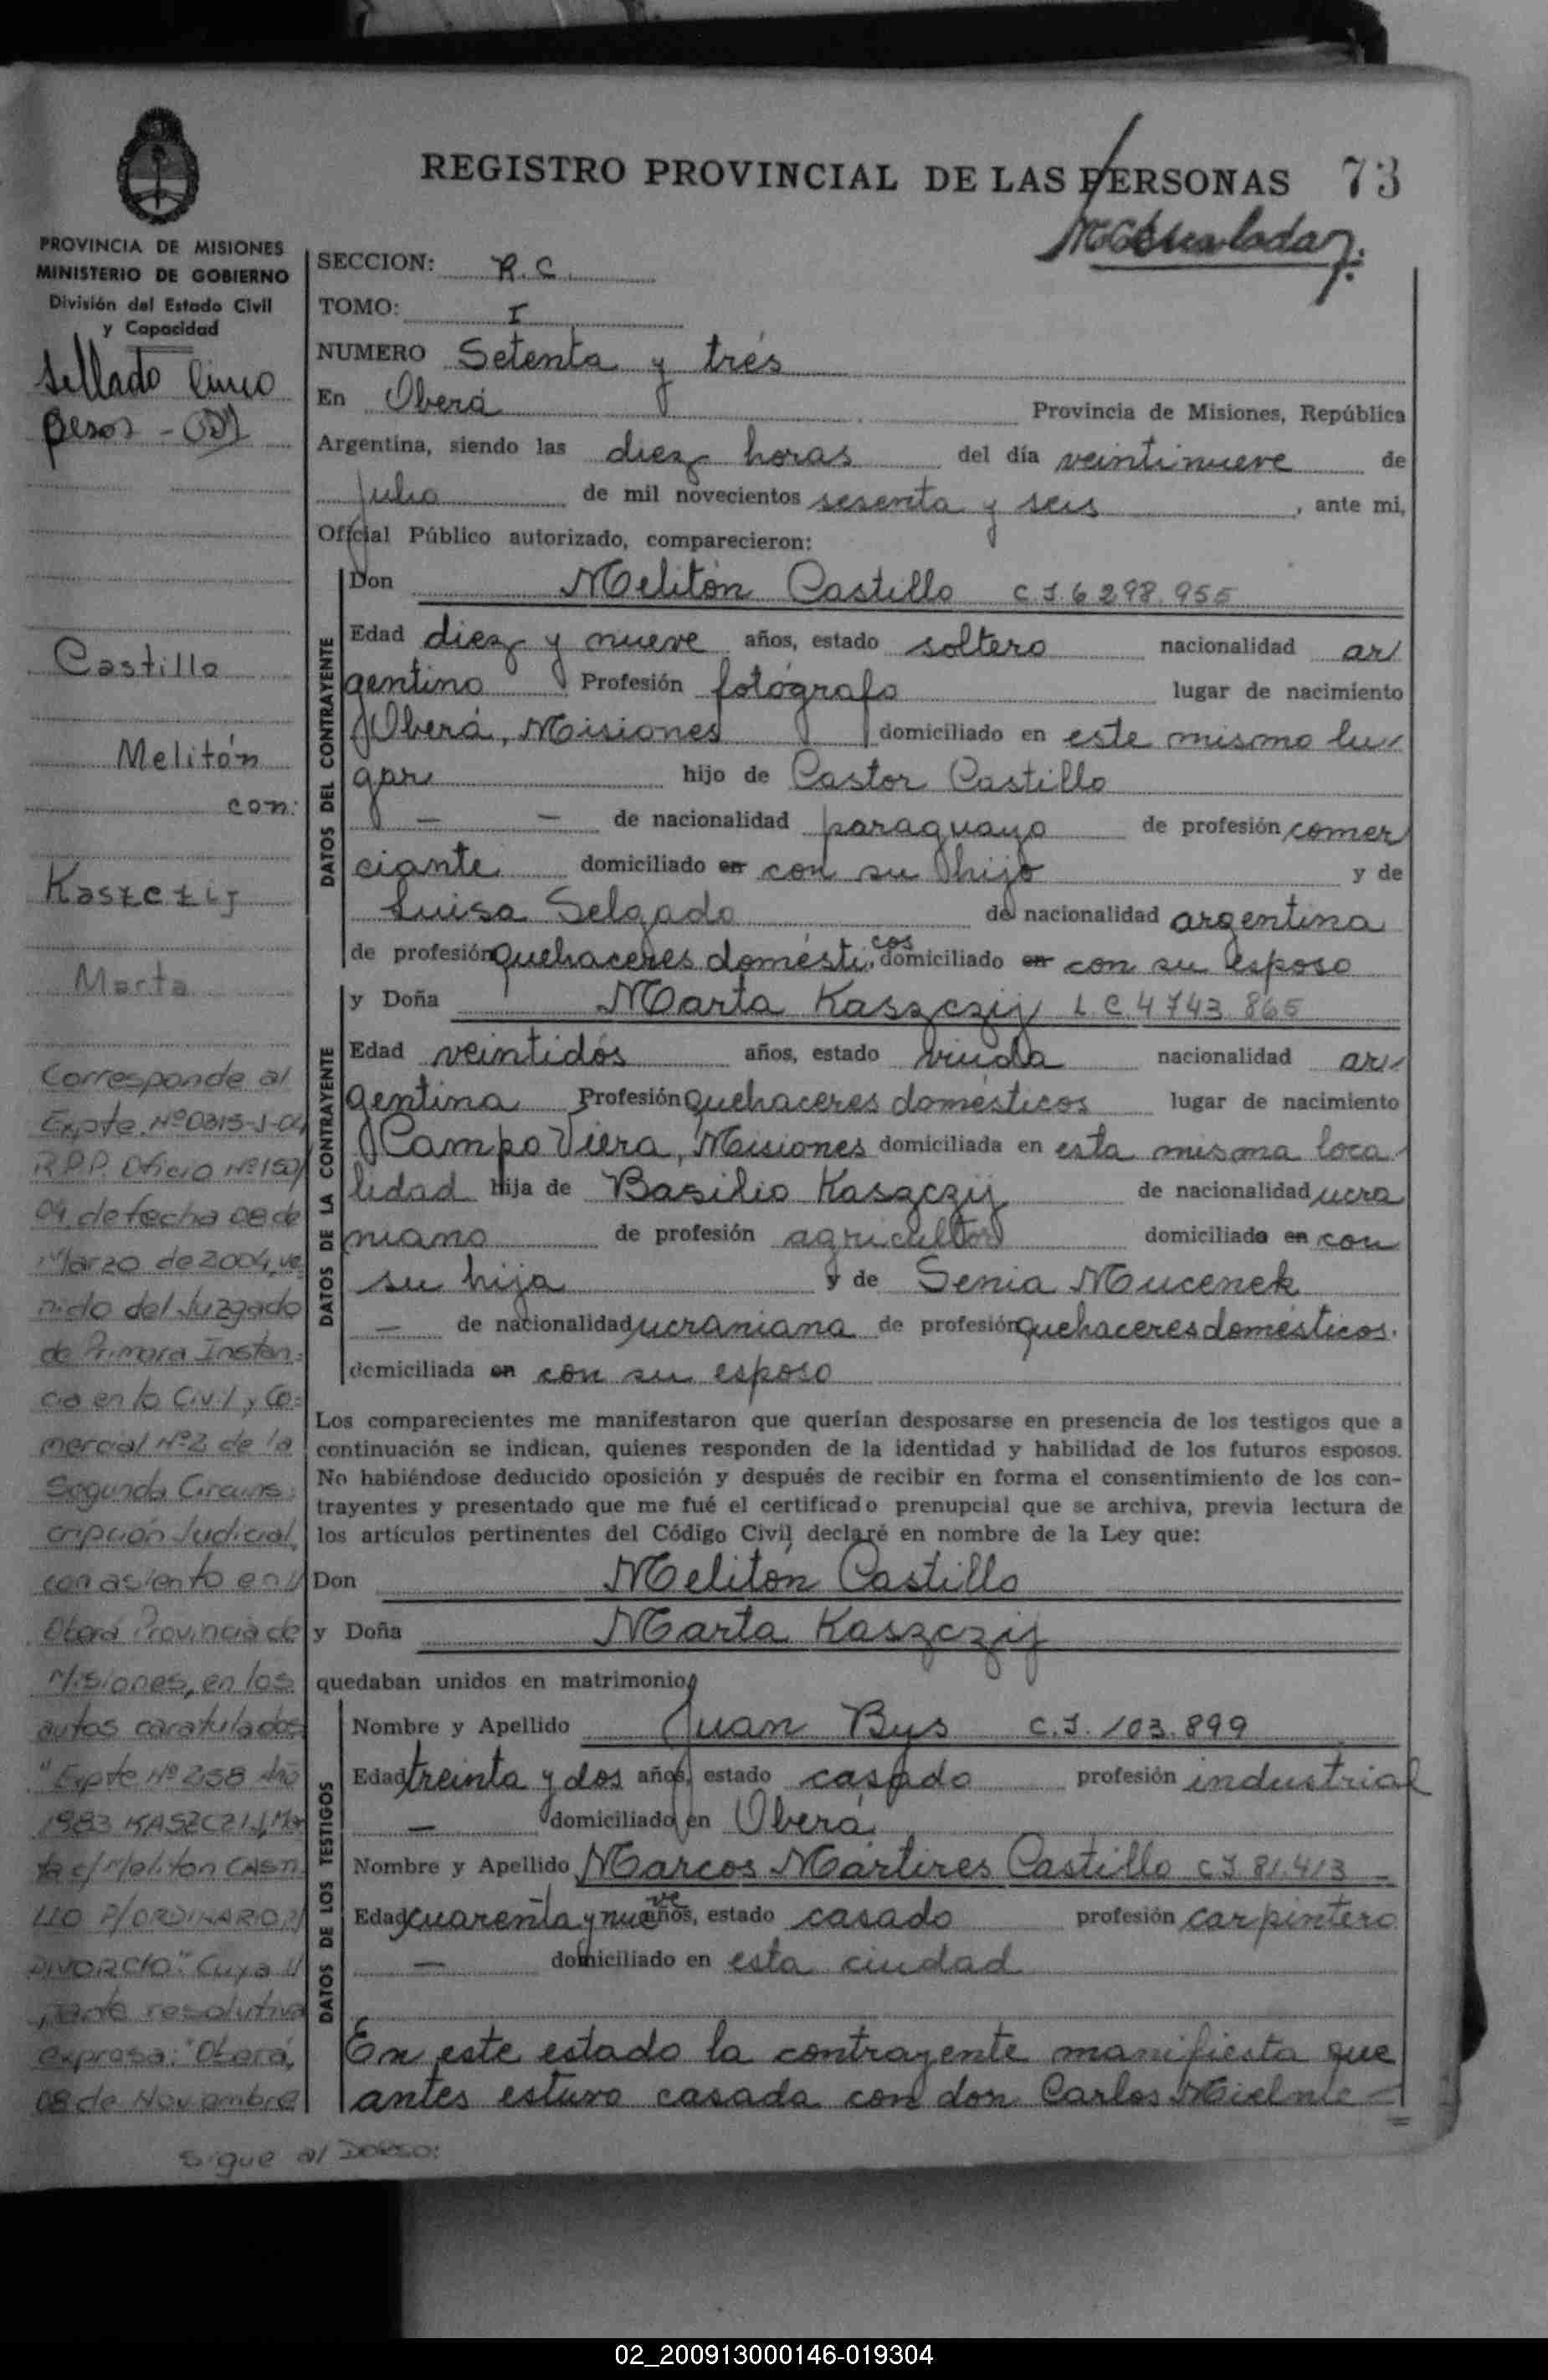 REGISTRO PROVINCIAL DE LAS PERSONAS 73
PROVINCIA DE MISIONES
MINISTERIO DE GOBIERNO
División del Estado Civil
y Capacidad
Sellado Cinco
pesos -
Castillo
Melitón
con:
Kaszczij
Marta
Corresponde al
Expte. Nº 0315-J-04
R.P.P. Oficio Nº 150/
04 de fecha 08 de
Marzo de 2004, ve
nido del Juzgado
de Primera Instan=
cia en lo Civil y Co=
mercial Nº 2 de la
Segunda Circuns=
cripción Judicial,
con asiento en //
Oberá Provincia de
Misiones, en los
autos caratulados
"Expte Nº 258 año
1983 KASZCZIJ, Mar
ta c/ Meliton CASTI
LLO P/ORDINARIO P/
DIVORCIO". Cuya //
parte resolutiva
expresa: "Oberá,
08 de Noviembre
Sigue al DORSO:
SECCION: R.C.
TOMO: I
NUMERO Setenta y tres
En Oberá Provincia de Misiones, República
Argentina, siendo las diez horas del día veintinueve de
Julio de mil novecientos sesenta y seis, ante mi,
Oficial Público autorizado, comparecieron:
DATOS DEL CONTRAYENTE
Don Melitón Castillo C.I. 6 298.955
Edad diez y nueve años, estado soltero nacionalidad ar/
gentino Profesión fotógrafo lugar de nacimiento
Oberá, Misiones domiciliado en este mismo lu/
gar hijo de Castor Castillo
- - de nacionalidad paraguayo de profesión comer
ciante domiciliado en con su hijo y de
Luisa Selgado de nacionalidad argentina
de profesión quehaceres domésticos domiciliado en con su esposo
DATOS DE LA CONTRAYENTE
y Doña Marta Kaszczij L.C. 4743.865
Edad veintidós años, estado viuda nacionalidad ar/
gentina Profesión quehaceres domésticos lugar de nacimiento
Campo Viera, Misiones domiciliada en esta misma loca
lidad Hija de Basilio Kaszczij de nacionalidad ucra
niano de profesión agricultor domiciliado en con
su hija y de Senia Mucenek
- de nacionalidad ucraniana de profesión quehaceres domésticos.
domiciliada en con su esposo
Los comparecientes me manifestaron que querían desposarse en presencia de los testigos que a
continuación se indican, quienes responden de la identidad y habilidad de los futuros esposos.
No habiéndose deducido oposición y después de recibir en forma el consentimiento de los con-
trayentes y presentado que me fué el certificado prenupcial que se archiva, previa lectura de
los artículos pertinentes del Código Civil declaré en nombre de la Ley que:
Don Melitón Castillo
y Doña Marta Kaszczij
quedaban unidos en matrimonio
DATOS DE LOS TESTIGOS
Nombre y Apellido Juan Bys C.I. 103.899
Edad treinta y dos años, estado casado profesión industrial
- domiciliado en Oberá
Nombre y Apellido Marcos Mártires Castillo C.I 81.413
Edad cuarenta y nueve años, estado casado profesión carpintero
- domiciliado en esta ciudad
En este estado la contrayente manifiesta que
antes estuvo casada con don Carlos Mielnic=
02_200913000146-019304